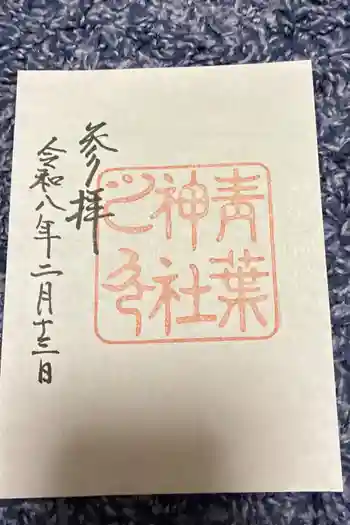 参拝
令和八年二月十三日
青葉
神社
之印